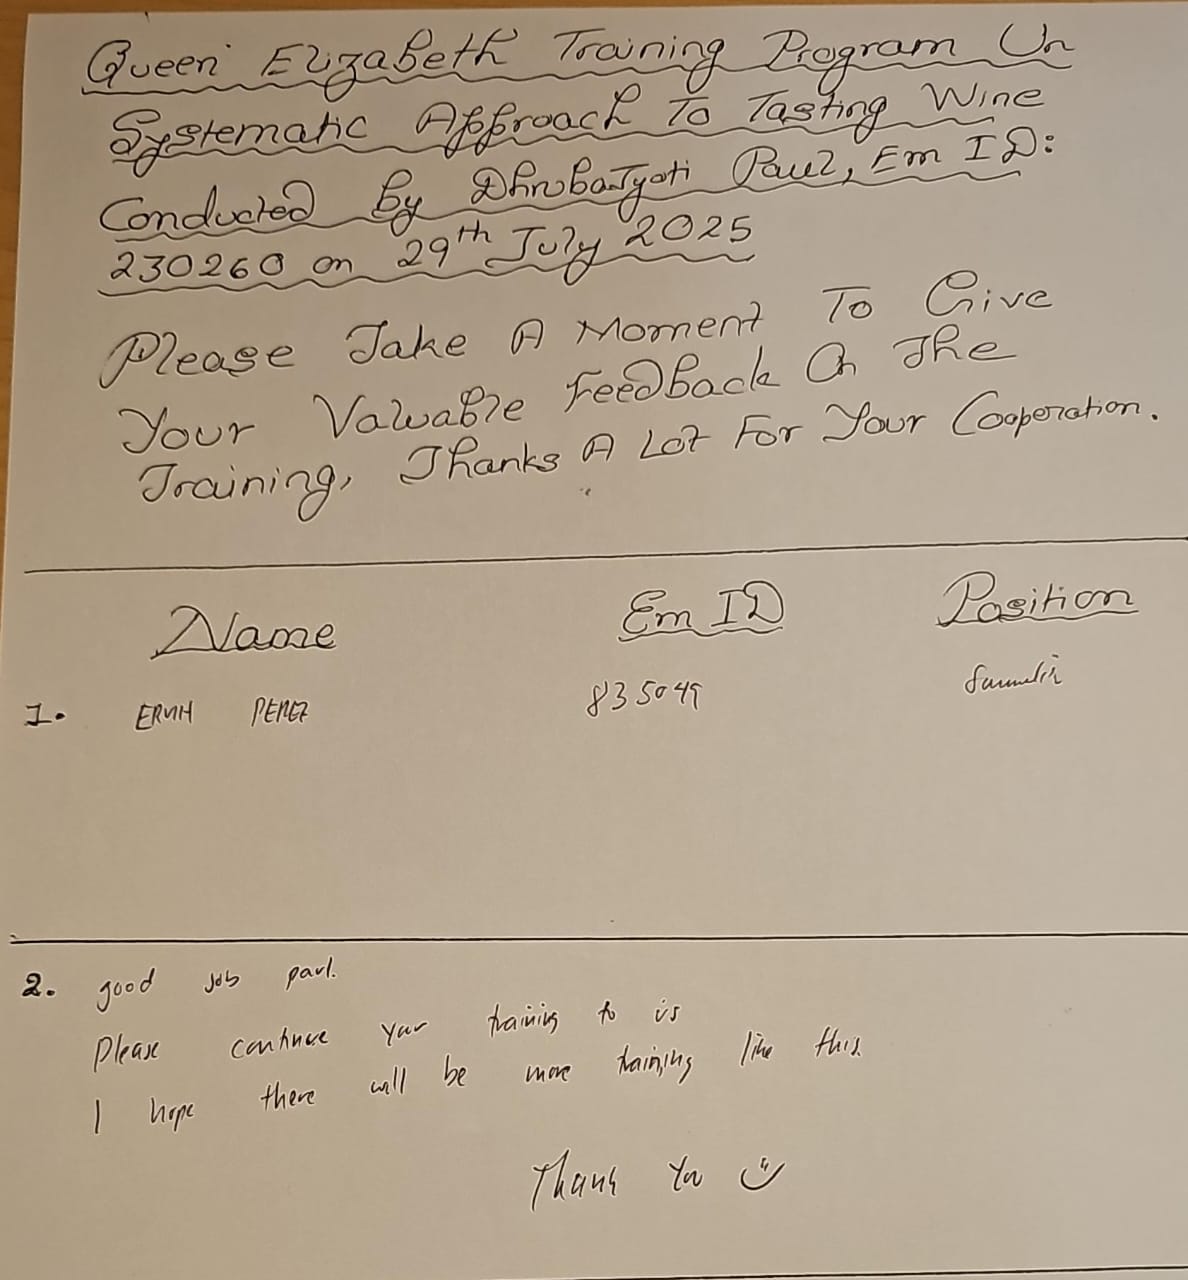 Queen Elizabeth Training Program On
Systematic Approach To Tasting Wine
Conducted By Dhrubajyoti Paul, Em ID:
230260 on 29th July 2025
Please Take A Moment To Give
Your Valuable Feedback On The
Training, Thanks A Lot For Your Cooperation.
Name Em ID Position
1. PEREZ 835049
2. good Job paul.
Please continue your training to us
I hope there will be more training like this
Thank You